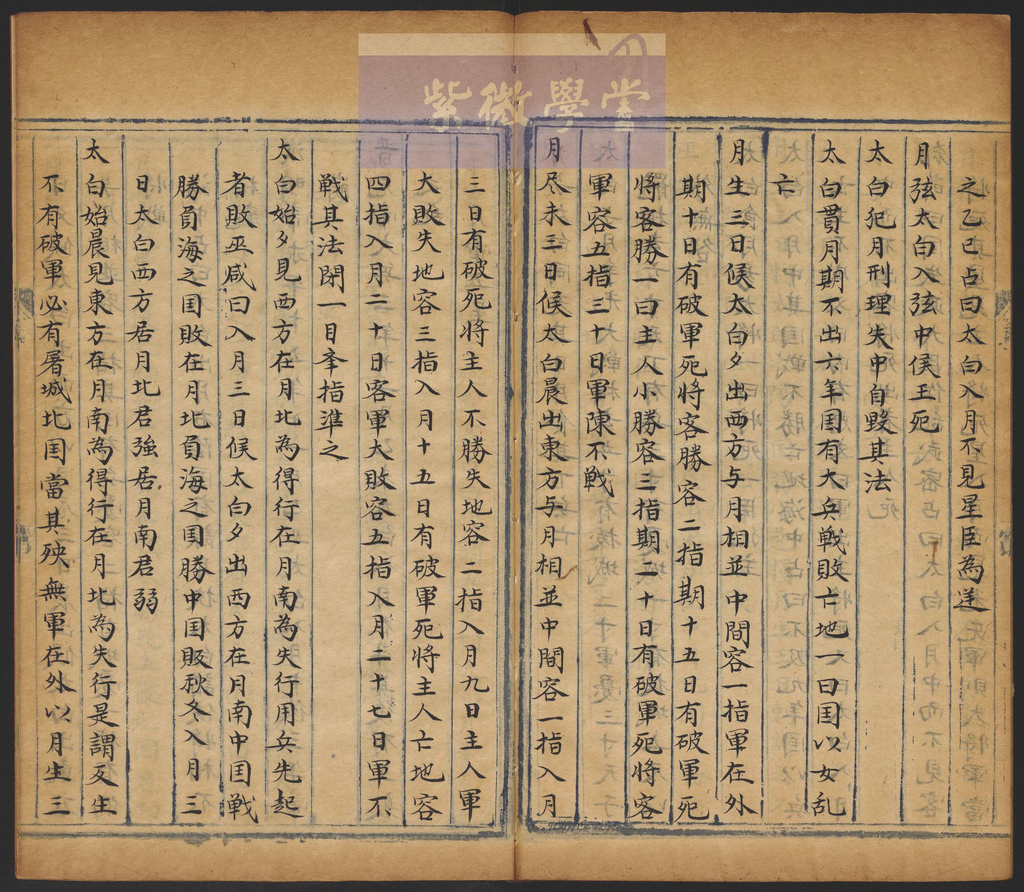 紫微學堂
之乙巳占曰太白入月不見星臣為逆
月弦太白入弦中侯王死
太白犯月刑理失中自毀其法
太白貫月期不出六年国有大兵戦敗亡地一曰国以女乱
亡
月生三日候太白夕出西方与月相並中間容一指軍在外
期十日有破軍死将客勝容二指期十五日有破軍死
将客勝一曰主人小勝容三指期二十日有破軍死将客
軍容五指三十日軍陳不戦
月尽未三日候太白晨出東方与月相並中間容一指入月
三日有破死将主人不勝失地容二指入月九日主人軍
大敗失地容三指入月十五日有破軍死将主人亡地容
四指入月二十日客軍大敗容五指入月二十七日軍不
戦其法閉一目夆指準之
太白始夕見西方在月北為得行在月南為失行用兵先起
者敗巫咸曰入月三日候太白夕出西方在月南中国戦
勝負海之国敗在月北負海之国勝中国敗秋冬入月三
日太白西方居月北君強居月南君弱
太白始晨見東方在月南為得行在月北為失行是謂反生
不有破軍必有屠城北国當其殃無軍在外以月生三